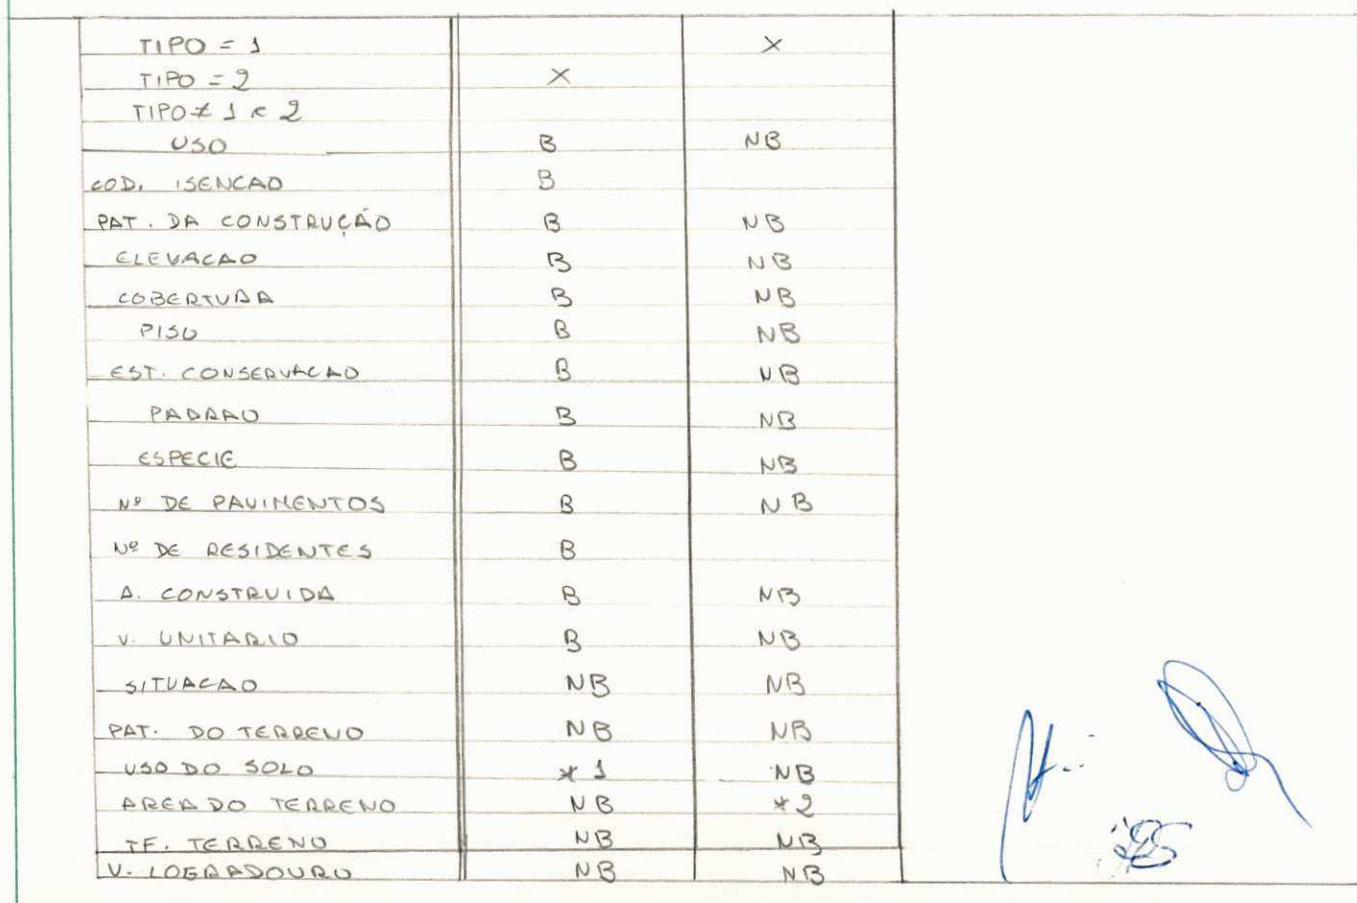 TIPO = 1 X
TIPO = 2 X
TIPO ≠ 1 e 2
USO B NB
COD. ISENCAO B
PAT. DA CONSTRUÇÃO B NB
ELEVACAO B NB
COBERTURA B NB
PISO B NB
EST. CONSERVACAO B NB
PADRAO B NB
ESPECIE B NB
Nº DE PAVIMENTOS B NB
Nº DE RESIDENTES B
A. CONSTRUIDA B NB
V. UNITARIO B NB
SITUACAO NB NB
PAT. DO TERRENO NB NB
USO DO SOLO *1 NB
AREA DO TERRENO NB *2
TF. TERRENO NB NB
V. LOGRADOURO NB NB